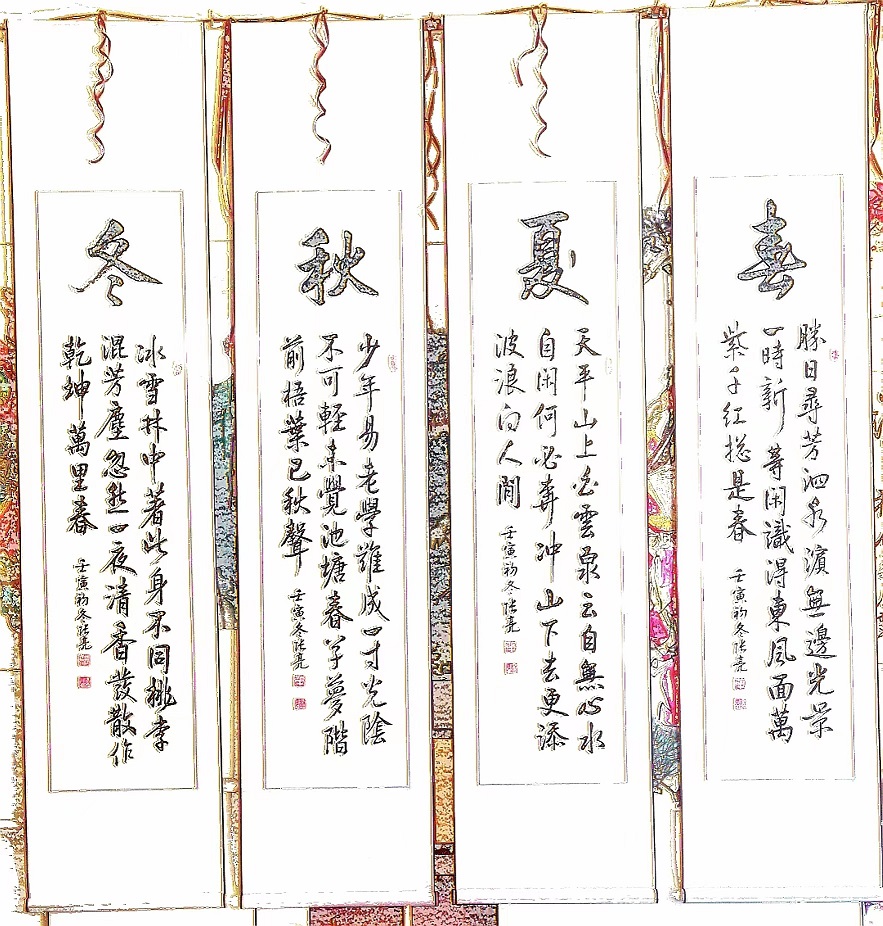 春
勝日尋芳泗水濱無邊光景
一時新等闲識得東風面萬
紫千红總是春
壬寅初冬张亮
夏
天平山上白雲泉云自無心水
自闲何必奔冲山下去更添
波浪向人間
壬寅初冬张亮
秋
少年易老學難成一寸光陰
不可輕未覺池塘春草夢階
前梧葉已秋聲
壬寅冬张亮
冬
冰雪林中著此身不同桃李
混芳塵忽然一夜清香發散作
乾坤萬里春
壬寅初冬张亮